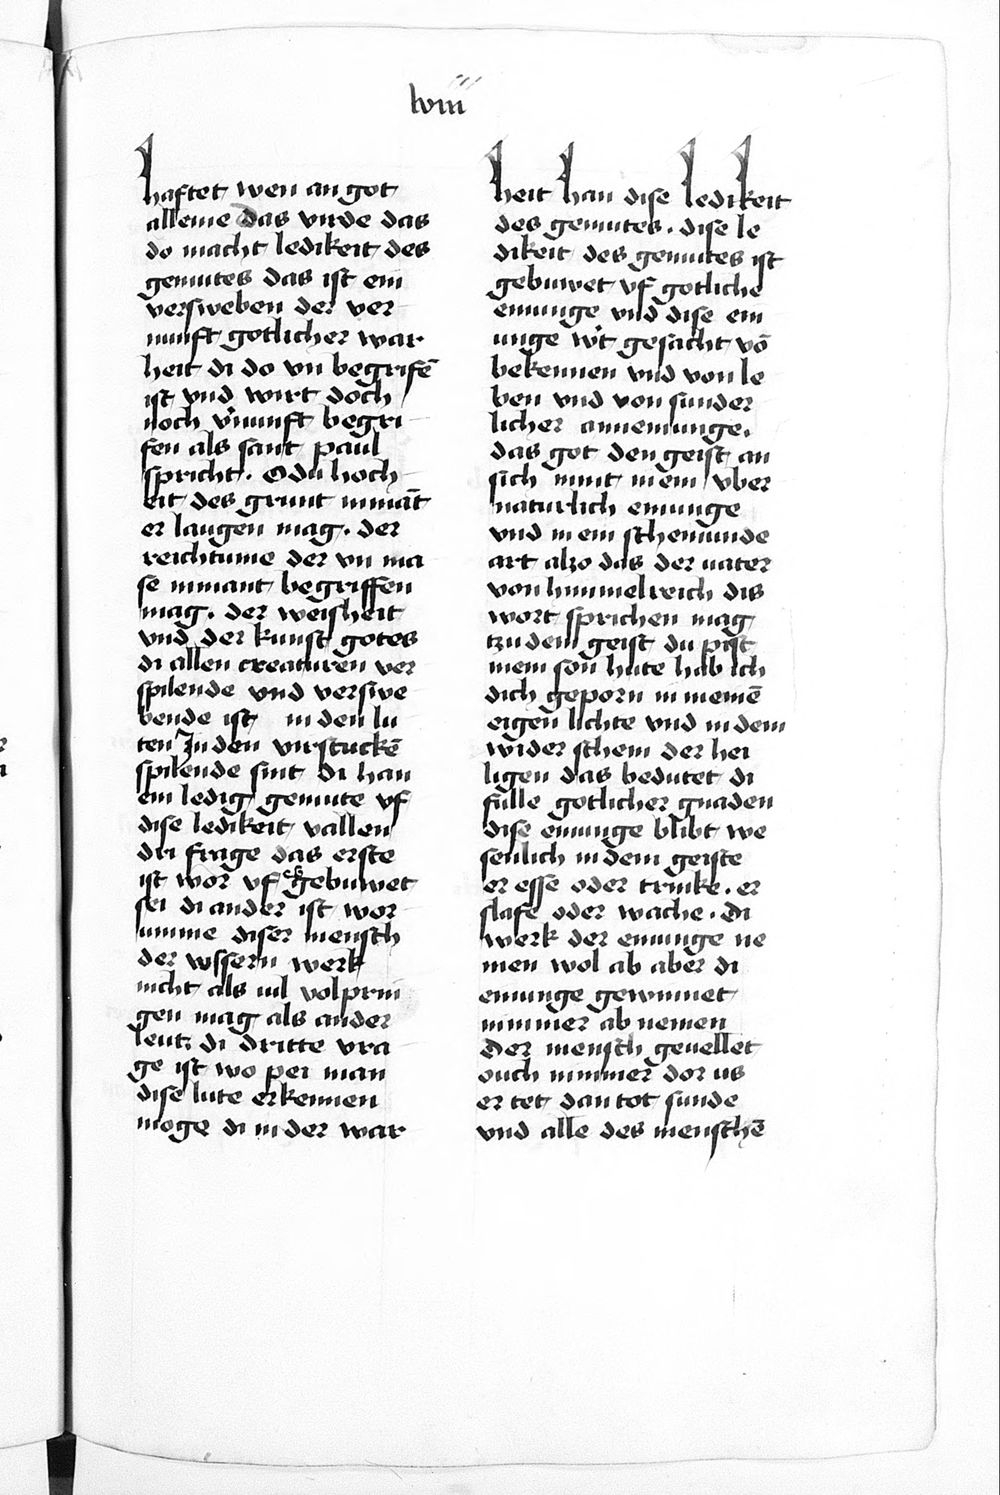 lviii
haftet wen an got
alleine das virde das
do macht ledikeit des
gemutes das ist ein
versweben der ver
nunft gotlicher war
heit di do vn begrifē
ist vnd wirt doch
noch v'nunft begri
fen als sant paul
spricht. O du hoch
eit des grunt nimāt
er laugen mag. der
reichtume der vn ma
se nimant begriffen
mag. der weisheit
vnd der kunst gotes
di allen creaturen ver
spilende vnd verswe
bende ist in den lu
ten In den virstuckē
spilende sint di han
ein ledig gemute vf
dise ledikeit vallen
dri frage das erste
ist wor vf gebuwet
sei di ander ist wor
umme diser mensch
der vssern werk
nicht als uil volprin
gen mag als ander
leutz di dritte vra
ge ist wo pei man
dise lute erkennen
moge di in der war
heit han dise ledikeit
des gemutes. dise le
dikeit des gemutes ist
gebuwet vf gotliche
einunge vnd dise ein
unge w't gesacht vō
bekennen vnd von le
ben vnd von sunder
licher annemunge.
das got den geist an
sich nimt in ein vber
naturlich einunge
vnd in ein schemunde
art alzo das der uater
von himmelreich dis
wort sprichen mag
tzu dem geist du pist
mein son hute hab ich
dich geporn in meinē
eigen lichte vnd in dem
wider schein der hei
ligen das bedutet di
fulle gotlicher gnaden
dise einunge blibt we
senlich in dem geiste
er esse oder trinke. er
slafe oder wache. Di
werk der einunge ne
men wol ab aber di
einunge gewinnet
nimmer ab nemen
Der mensch geuellet
ouch nimmer dor us
er tet dan tot sunde
vnd alle des menschē